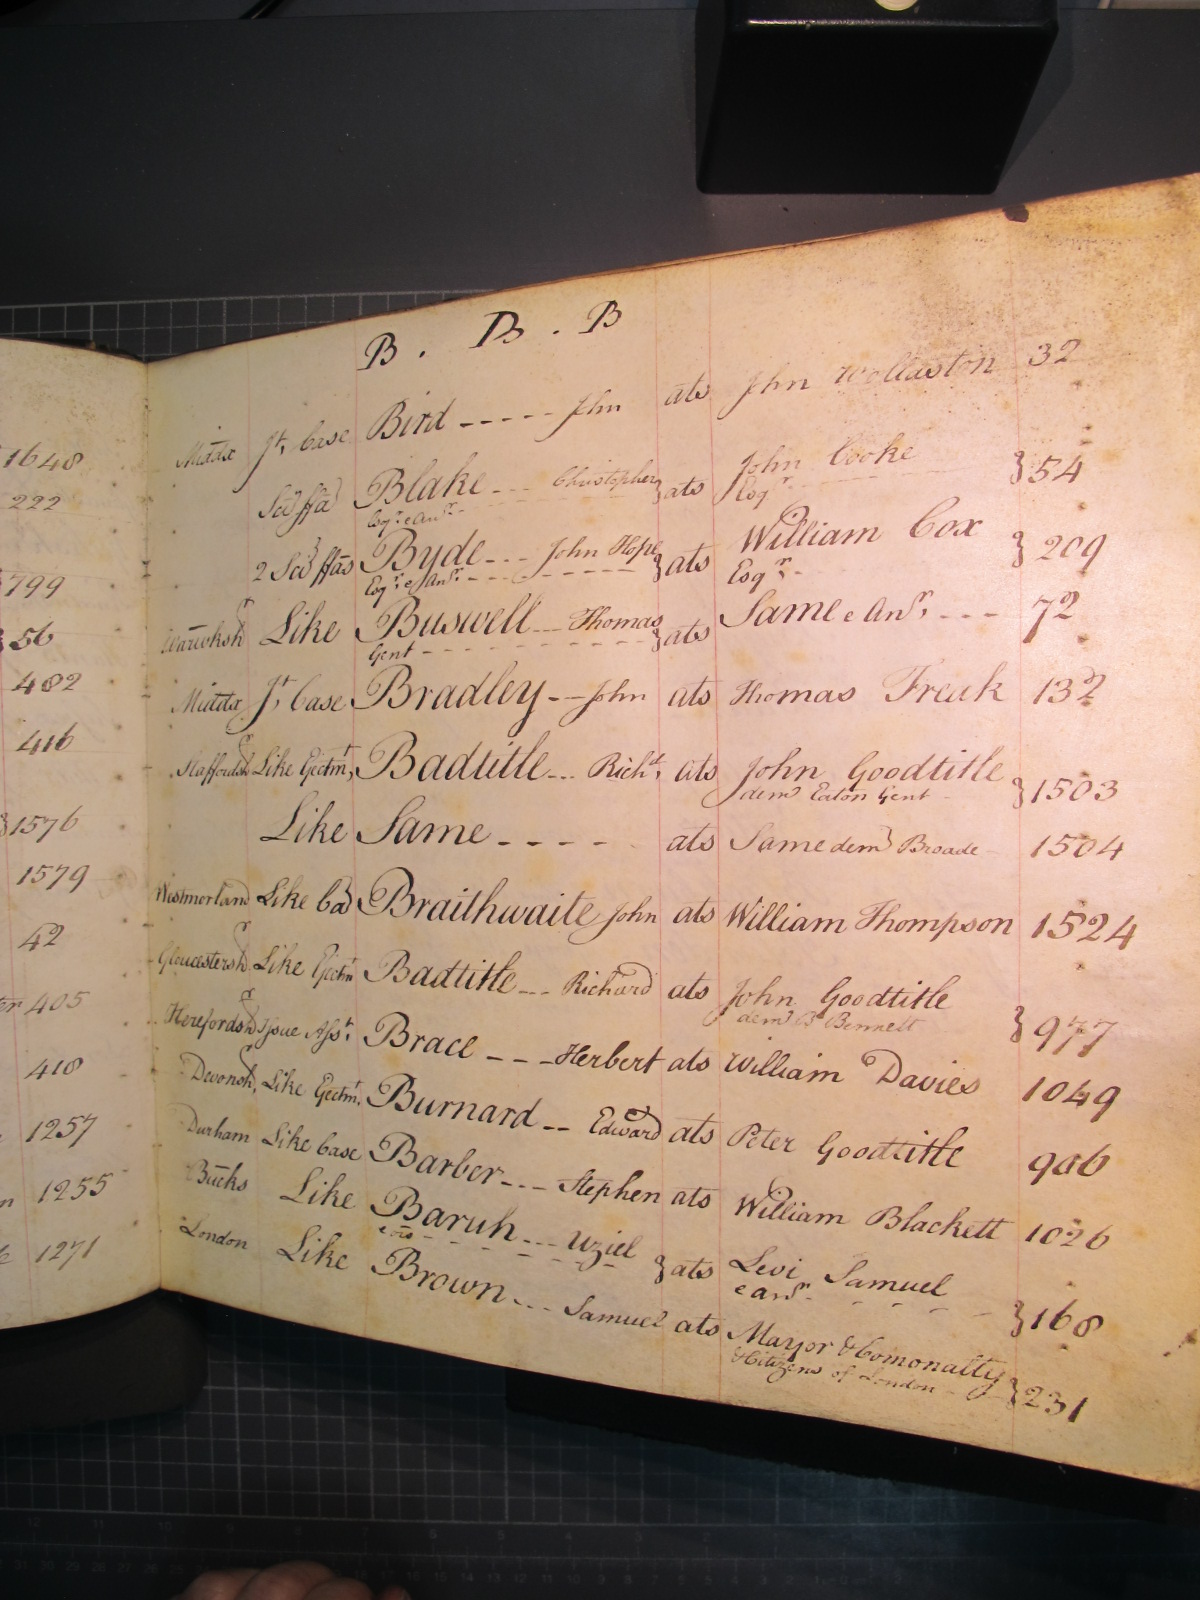 1648
222
799
56
482
416
1576
1579
42
405
418
1257
1255
1271
B . B . B
Middx Jt. Case Bird ---- John ats John Wollaston 32
Sci ffa Blake --- Christopher } ats John Cooke } 54
Esqr. e Anr. Esqr
2 Sci ffas Byde --- John Hope } ats William Cox } 209
Esqr. e Anr. Esqr.
Warwksh Like Buswell --- Thomas } ats Same e Anr. --- 72
Gent
Middx Jt. Case Bradley -- John ats Thomas Freak 132
Staffordsh Like Ejectmt, Badtitle --- Richd. ats John Goodtitle } 1503
dem Eaton Gent
Like Same ---- ats Same dem Broade 1504
Westmorland Like Ca Braithwaite John ats William Thompson 1524
Gloucestersh Like Ejectm Badtitle --- Richard ats John Goodtitle } 977
dem B Bennett
Herefordsh Issue Asst. Brace --- Herbert ats William Davies 1049
Devonsh, Like Ejectmt. Burnard -- Edward ats Peter Goodtitle 906
Durham Like Case Barber --- Stephen ats William Blackett 1026
Bucks Like Baruh --- Uziel } ats Levi Samuel } 168
e anr.
London Like Brown --- Samuel ats Mayor & Comonalty } 231
& Citizens of London
12 11 10 9 8 7 6 5 4 3 2 1